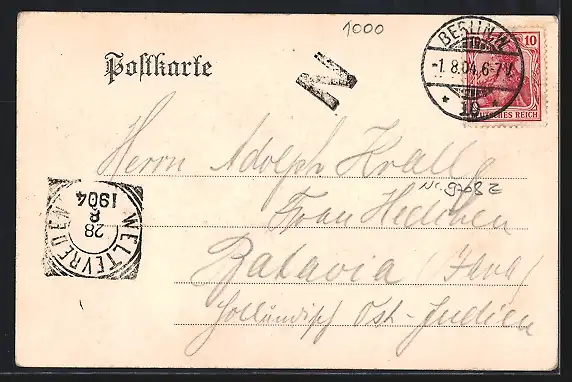 1000
Postkarte
N
BERLIN.N.
-1.8.04.6-7V.
* 19 *
10
DEUTSCHES REICH
Herrn Adolph Krall
Nr. 9708 Z
Frau Hedchen
Batavia (Java)
Holländisch Ost-Indien
WELTEVREDEN
28
8
1904